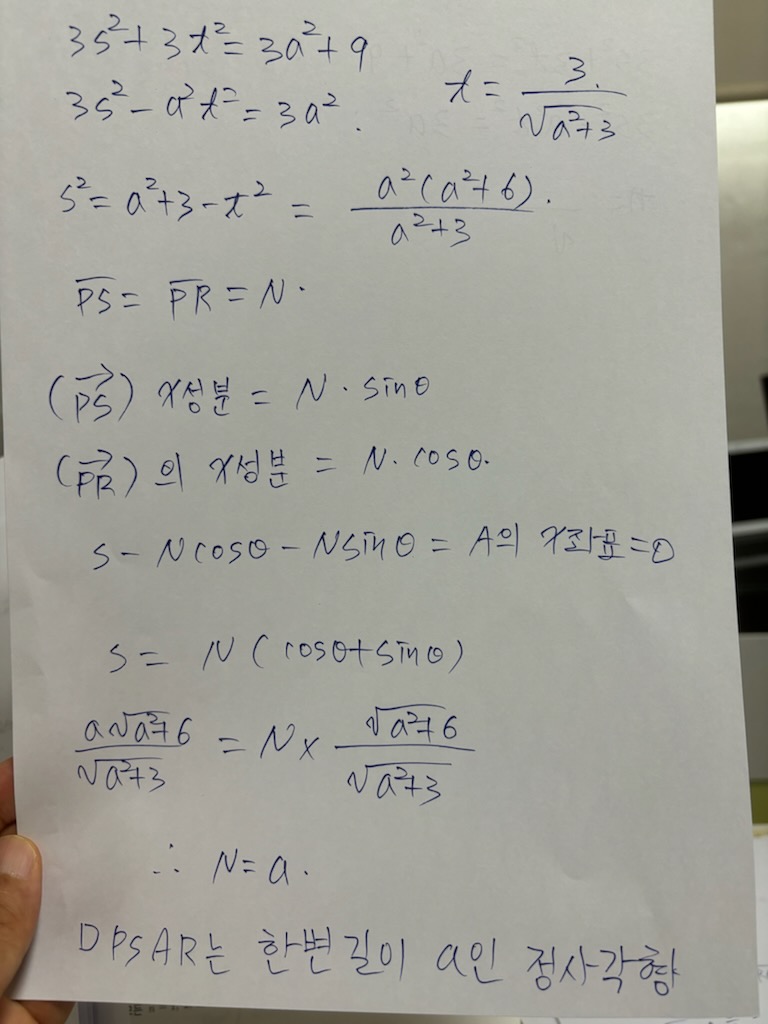 3s²+3t²=3a²+9
3s²-a²t²=3a².
t=3/√(a²+3)
s²=a²+3-t²=a²(a²+6)/(a²+3).
PS=PR=N.
(PS) x성분=N·sinθ
(PR)의 x성분=N·cosθ.
s-Ncosθ-Nsinθ=A의 x좌표=0
s=N(cosθ+sinθ)
a√(a²+6)/√(a²+3)=N×√(a²+6)/√(a²+3)
∴ N=a.
□PSAR는 한변길이 a인 정사각형